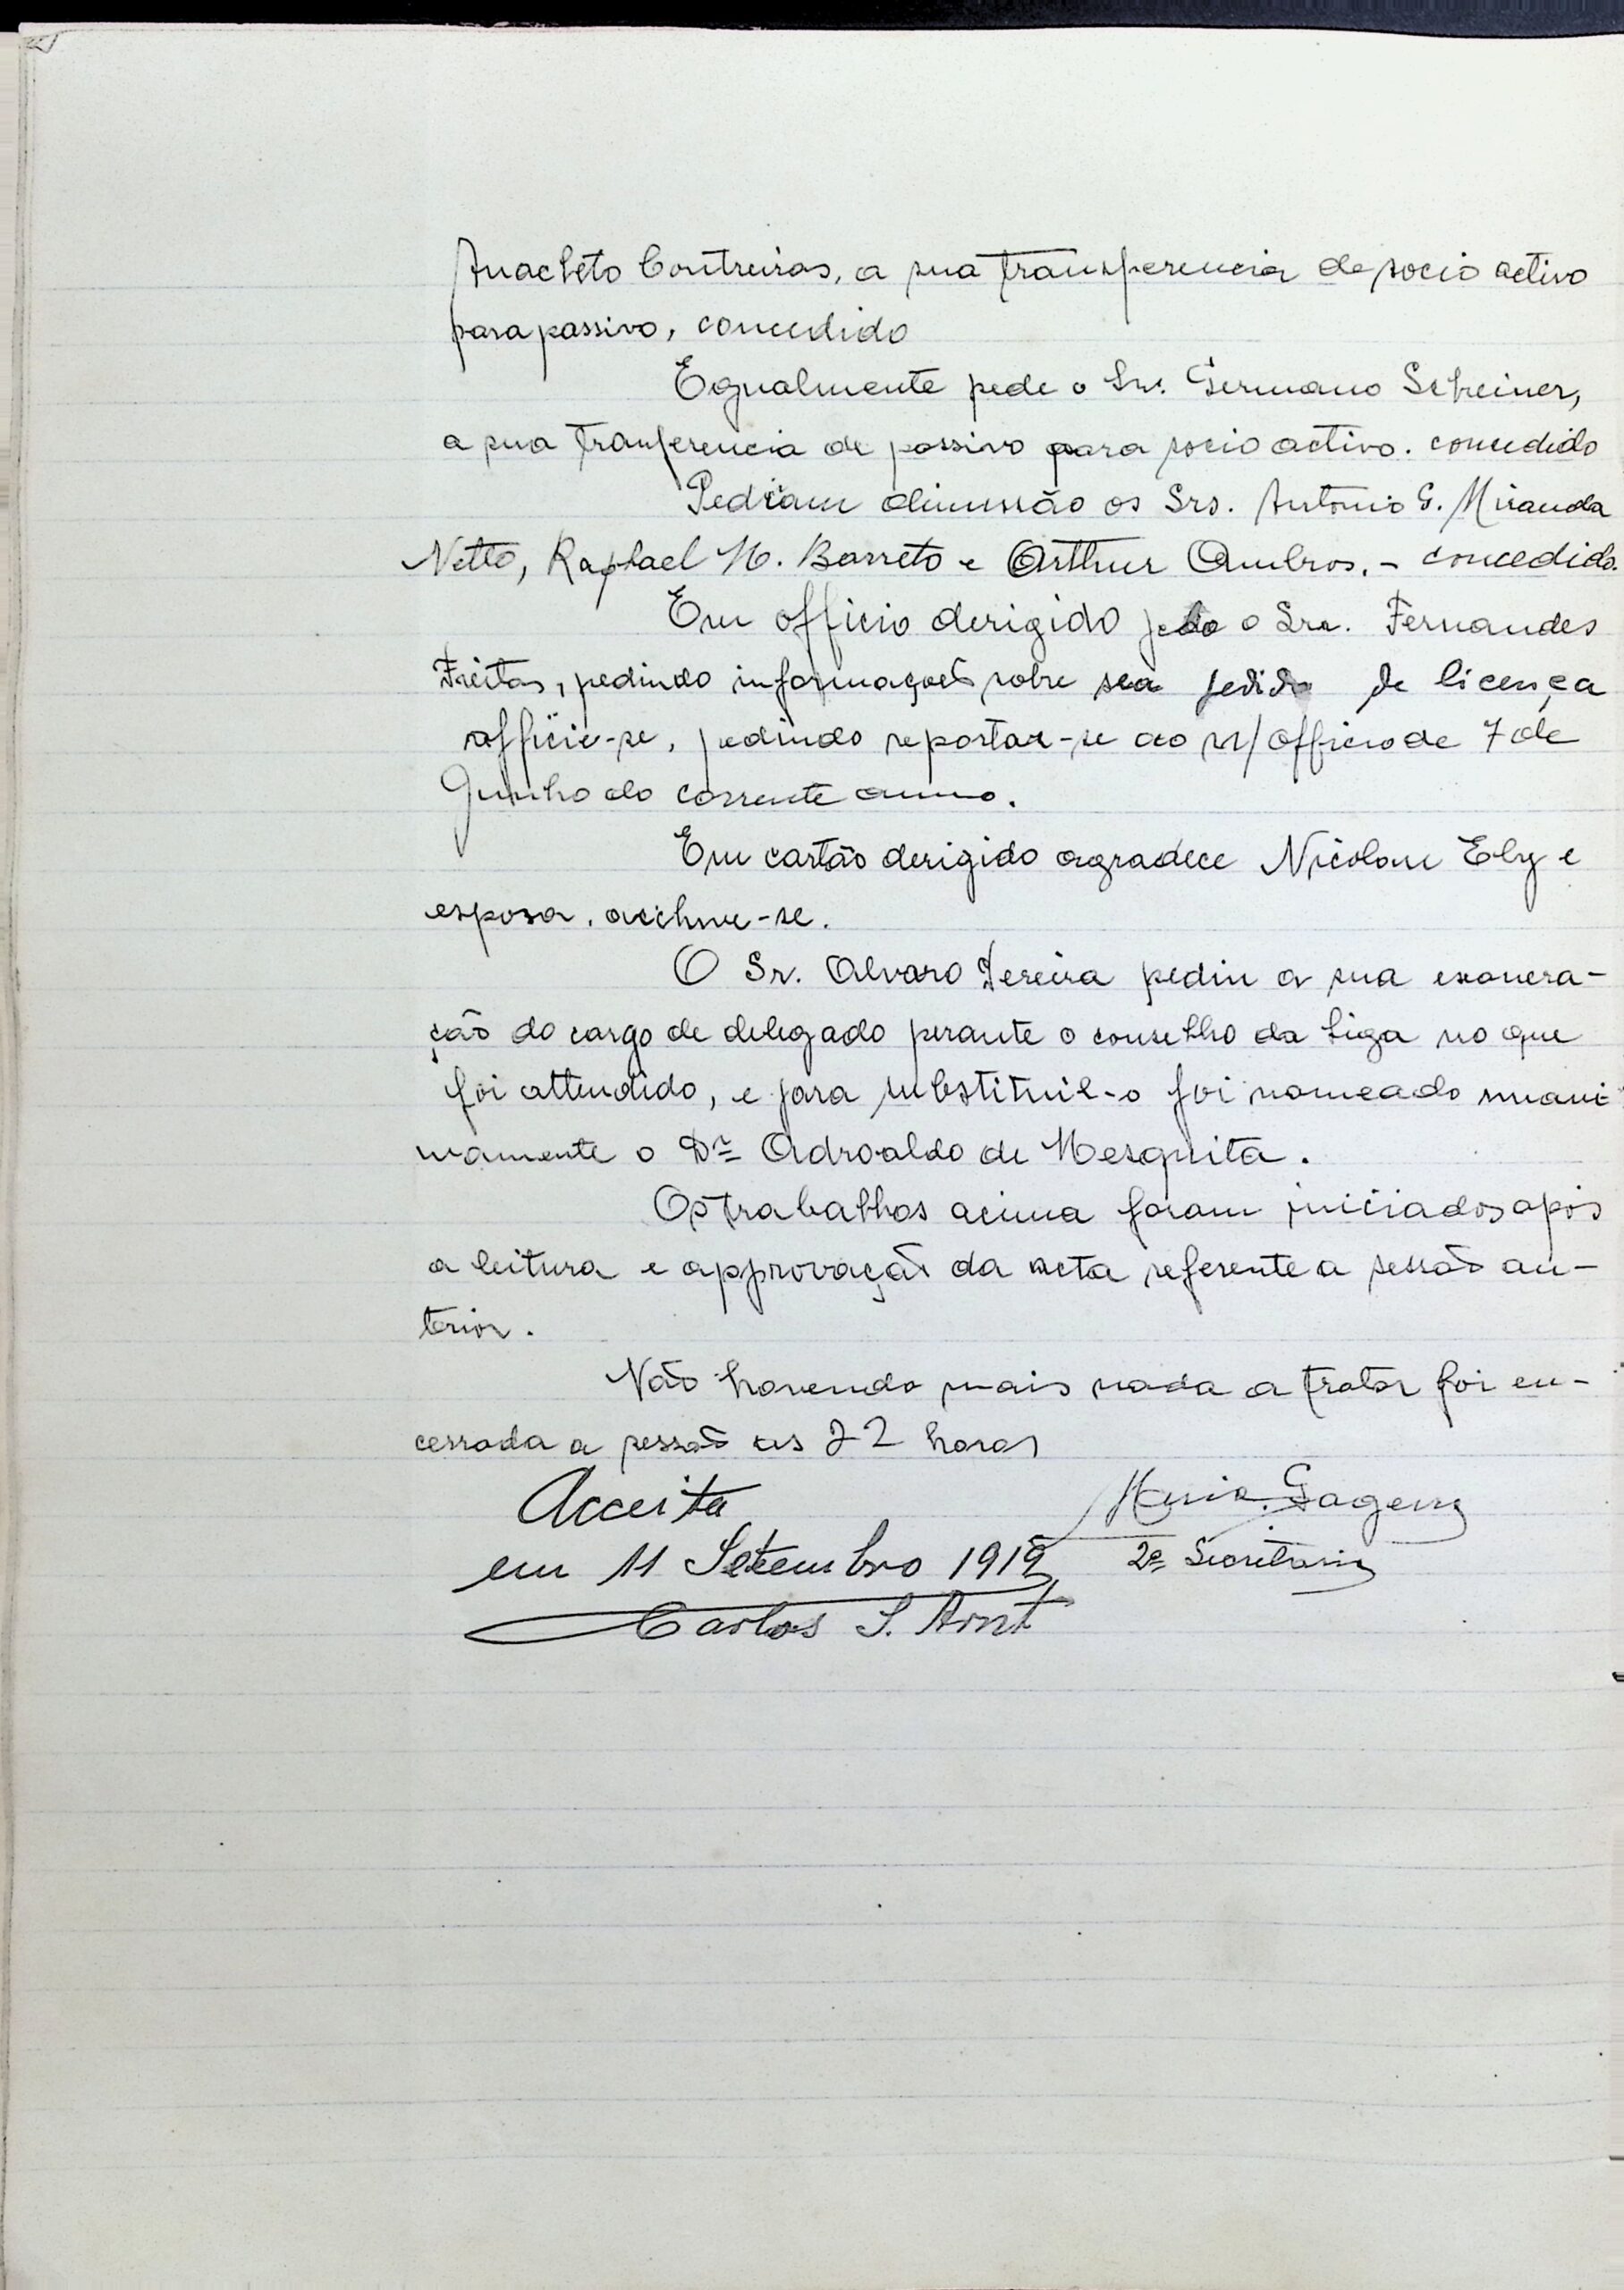 Anacleto Contreiras, a sua transferencia de socio activo
para passivo, concedido
Egualmente pede o Snr. Germano Schreiner,
a sua tranferencia de passivo para socio activo. concedido
Pediram dimissão os Srs. Antonio G. Miranda
Netto, Raphael M. Barreto e Arthur Ambros. - concedido.
Em officio derigido pelo o Snr. Fernandes
Freitas, pedindo informações sobre seu pedido de licença
officie-se, pedindo reportar-se ao n/ officio de 7 de
Junho do corrente anno.
Em cartão derigido agradece Nicolau Ely e
esposa. archive-se.
O Sr. Alvaro Pereira pediu a sua exonera-
ção do cargo de delegado perante o conselho da Liga no que
foi attendido, e para substituil-o foi nomeado unani
mamente o Dr Adroaldo de Mesquita.
Os trabalhos acima foram iniciados após
a leitura e approvação da acta referente a sessão an-
terior.
Não havendo mais nada a tratar foi en-
cerrada a sessão as 22 horas
Acceita
em 11 Setembro 1919
2º Secretario
Carlos S. Arnt